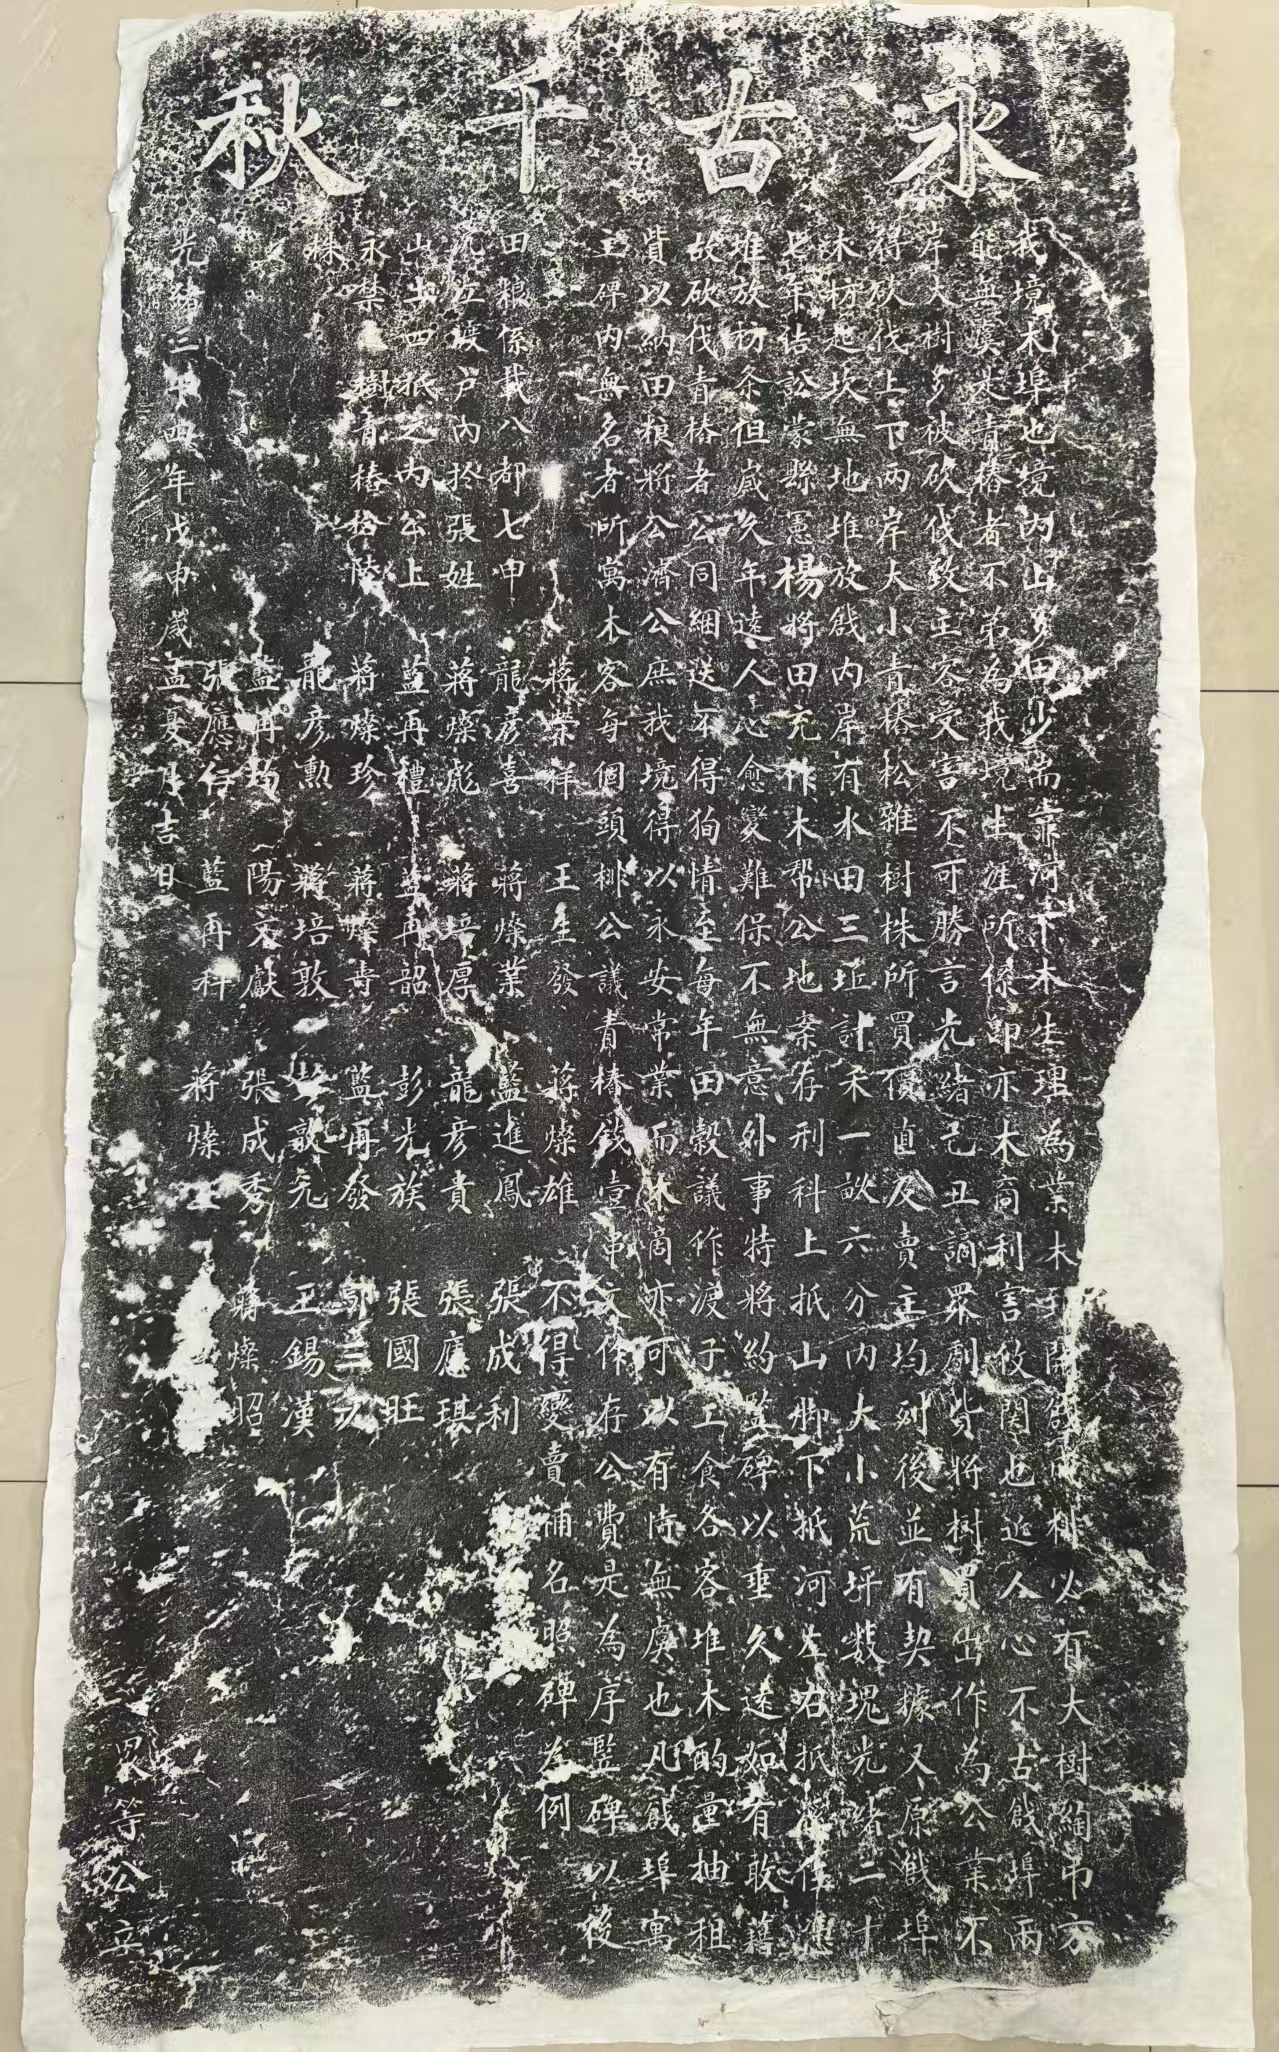 永古千秋
我境木埠也境內山多田少耑靠河下木生理為業木開成排必有大樹綯吊方
能無虞是青樁者不第為我境生涯所係即亦木商利害攸関也近人心不古戧埠兩
岸大樹多被砍伐致主客受害不可勝言光緒己丑謫眾劇貲將樹買出作為公業不
得砍伐上下兩岸大小青樁松雜樹株所買價直及賣主均列後並有契據又原戧埠
木枋起坎無地堆放戧內岸有水田三坵計禾一畝六分內大小荒坪数塊光緒二十
七年結訟蒙縣憲楊將田充作木帮公地案存刑科上抵山脚下抵河左右抵為憑
堆放枋条但歲久年遠人心愈變難保不無意外事特將約竪碑以垂久遠如有敢藉
故砍伐青樁者公同綑送不得狥情至每年田榖議作渡子工食各客堆木酌量抽租
貲以納田粮將公濟公庶我境得以永安常業而木商亦可以有恃無虞也凡戧埠寓
主碑內無名者所寓木客每個頭排公議青樁錢壹串文作存公費是為序竪碑以後
蔣榮祥 王生發 蔣燦雄 不得變賣補名昭碑為例
田粮係載八都七甲 龍彥喜 蔣燦業 藍進鳳 張成利
沅江坡户內於張姓 蔣燦彪 蔣培厚 龍彥貴 張應琪
山土四抵之內公上 藍再禮 藍再韶 彭光族 張國旺
永禁樹青樁拾陸 蔣燦珍 蔣燦壽 藍再發 郭三人
株 龍彥勳 蔣培敦 彭敦堯 王錫漢
藍再均 陽文獻 張成秀 蔣燦昭
張應行 藍再科 蔣燦
光緒三十四年戊申歲孟夏月吉日 眾等公立